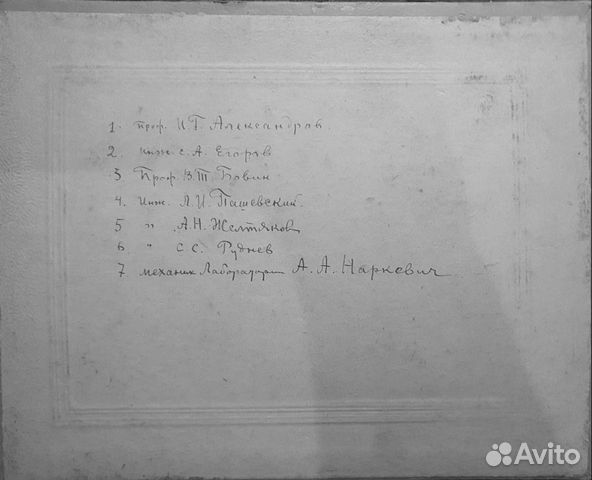 1. проф. И Г. Александров.
2. инж. С. А. Егоров
3 Проф. В. Т. Бовин
4. Инж. Л. И. Пашевский.
5 " А. Н. Желтянов
6 " С С. Руднев
7 механик Лаборатории А. А. Наркевич
Avito